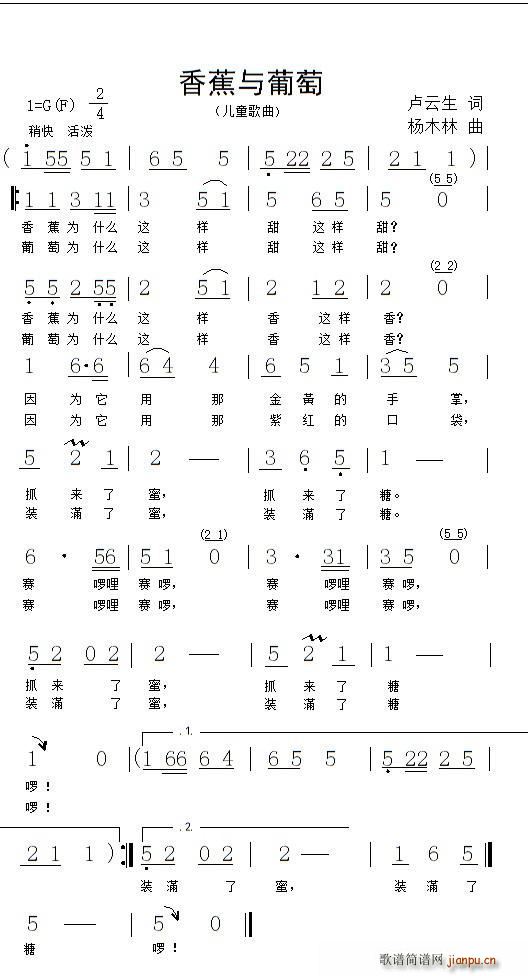 香蕉与葡萄
1=G(F) 2/4
(儿童歌曲)
卢云生 词
稍快 活泼
杨木林 曲
( 1 55 5 1 | 6 5 5 | 5 22 2 5 | 2 1 1 ) |
(5 5)
1 1 3 11 | 3 5 1 | 5 6 5 | 5 0 |
香蕉为什么 这 样 甜 这样 甜?
葡萄为什么 这 样 甜 这样 甜?
(2 2)
5 5 2 55 | 2 5 1 | 2 1 2 | 2 0 |
香蕉为什么 这 样 香 这样 香?
葡萄为什么 这 样 香 这样 香?
1 6·6 | 6 4 4 | 6 5 1 | 3 5 5 |
因 为它 用 那 金黄的 手 掌,
因 为它 用 那 紫红的 口 袋,
5 2 1 | 2 — | 3 6 5 | 1 — |
抓 来了 蜜, 抓 来了 糖。
装 满了 蜜, 装 满了 糖。
(2 1) (5 5)
6 · 56 | 5 1 0 | 3 · 31 | 3 5 0 |
赛 啰哩 赛啰, 赛 啰哩 赛啰,
赛 啰哩 赛啰, 赛 啰哩 赛啰,
5 2 0 2 | 2 — | 5 2 1 | 1 — |
抓来 了 蜜, 抓 来了 糖
装满 了 蜜, 装 满了 糖
1.
1 0 | (1 66 6 4 | 6 5 5 | 5 22 2 5 |
啰!
啰!
2.
2 1 1 ) :| 5 2 0 2 | 2 — | 1 6 5 |
装满 了 蜜, 装 满了
5 — | 5 0 |
糖 啰!
歌谱简谱网
jianpu.cn